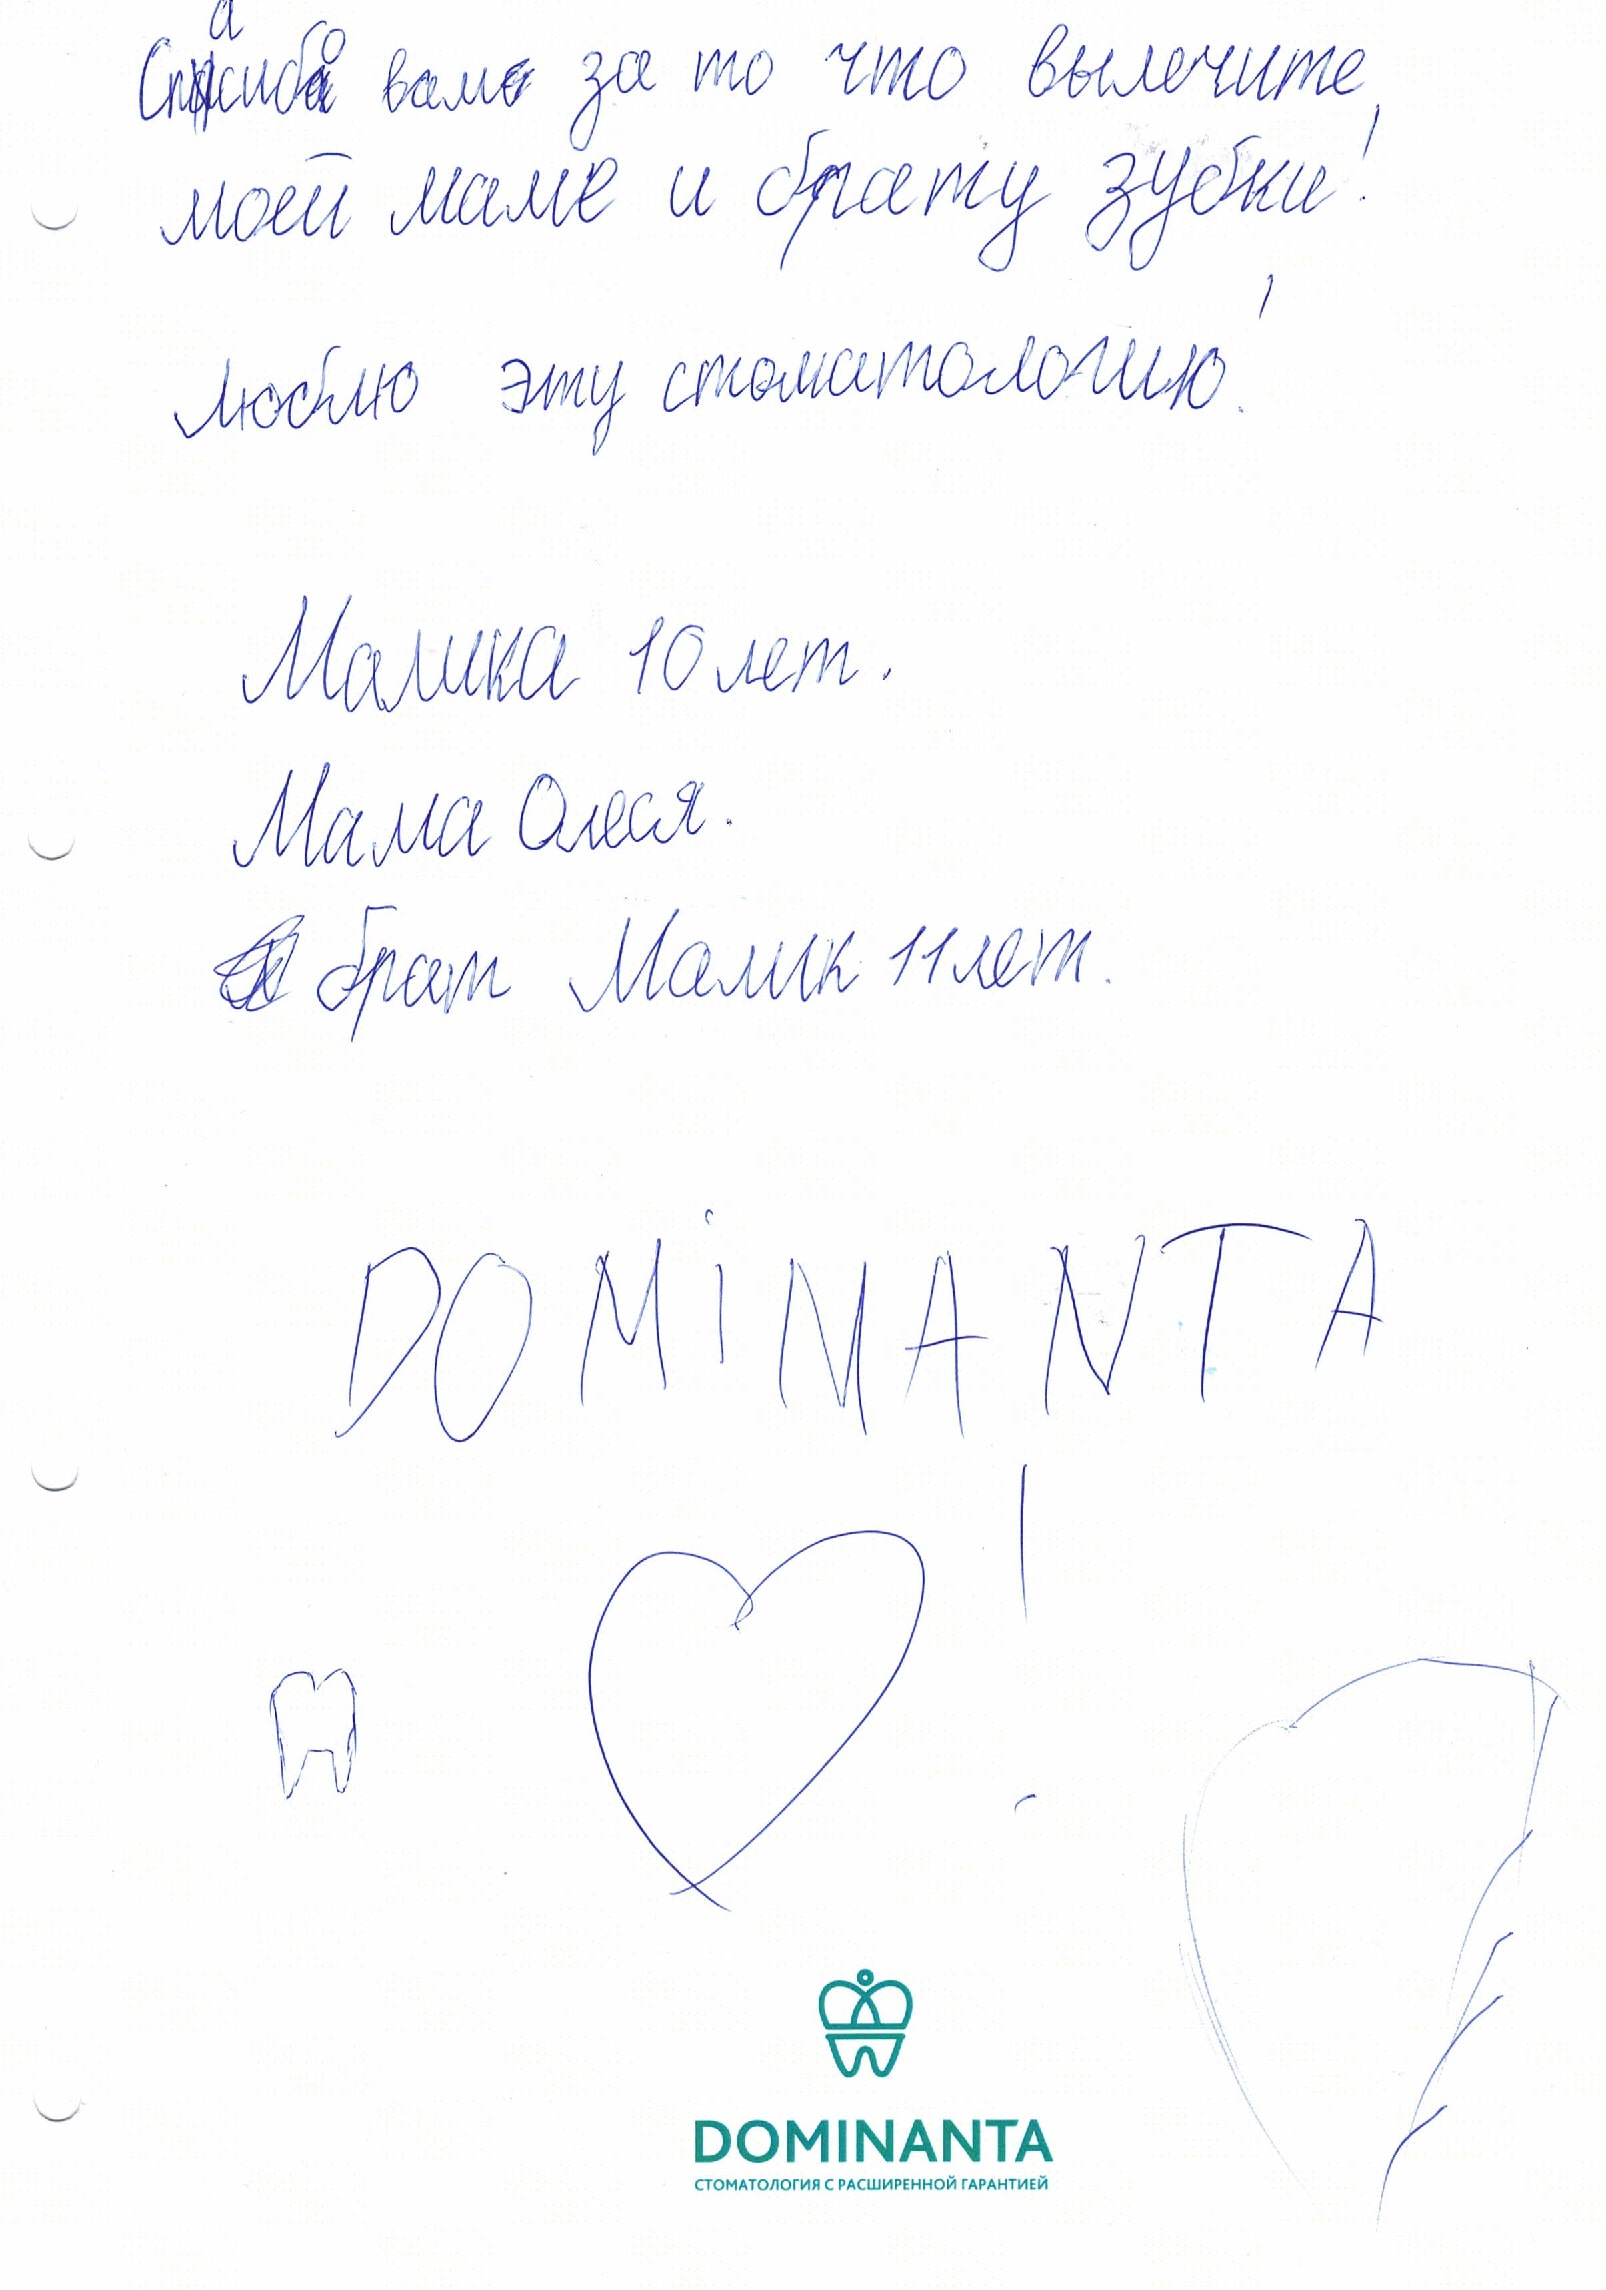 Спасибо вам за то что вылечите
моей маме и брату зубки!
Люблю эту стоматологию!
Малика 10 лет.
Мама Олеся.
брат Малик 11 лет.
DOMiNANTA
!
DOMINANTA
СТОМАТОЛОГИЯ С РАСШИРЕННОЙ ГАРАНТИЕЙ